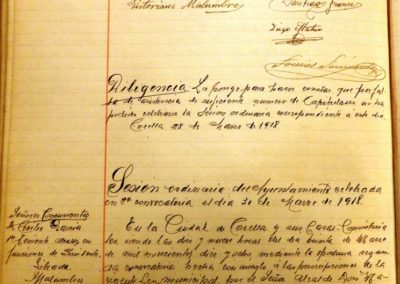 Victoriano Malumbre
Santiago Franca
Diligencia La pongo para hacer constar que por fal
ta de asistencia de suficiente numero de Capitulares no ha
podido celebrarse la Sesion ordinaria correspondiente a este dia
Corella 28 de Marzo de 1918
Sesion ordinaria del Ayuntamiento celebrada
en 2ª convocatoria el dia 30 de Marzo de 1918.
Señores Concurrentes
D. Cecilio Garcia
1er Teniente Alcalde en
funciones de Presidente
Malumbre
En la Ciudad de Corella y sus Casas Consistoria
les siendo las diez y nueve horas del dia treinta de Marzo
de mil novecientos diez y ocho mediante la oportuna segun
convocatoria hecha con arreglo a las prescripciones de la
vigente Ley municipal por el Señor Alcalde